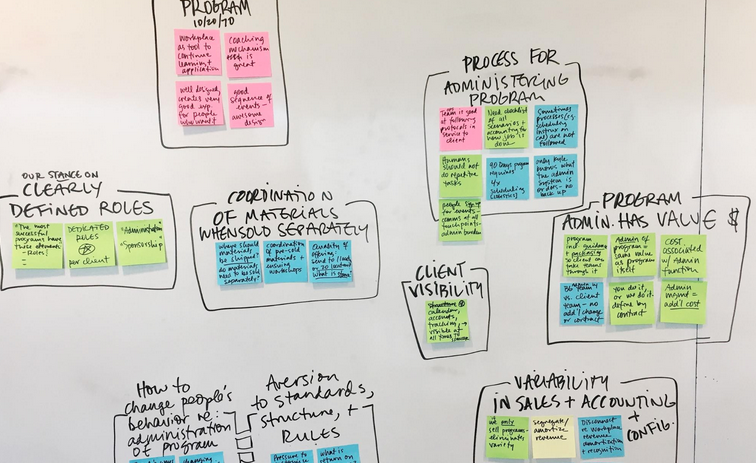 PROGRAM
10/20/70
Workplace
as tool to
continue
learning +
application
coaching
mechanism
is
great
well designed,
creates very
good exp.
for people
good
sequence of
events -
awesome design
PROCESS FOR
ADMINISTERING
PROGRAM
Team is good
at following
protocols in
service to
client
Need checklist
of all
scenarios +
accounting for
how job is
done
Sometimes
processes (e.g.
scheduling
on
cal) are not
followed
Humans
should not
do repetitive
tasks
90 Days program
requires
4x
scheduling
(logistics)
only Kyle
knows what
the admin
system is
or does - no
back up
people sign up
for events -
comms at all
touchpoints -
admin burden
OUR STANCE ON
CLEARLY
DEFINED ROLES
"The most
successful
programs have
these attended
- Roles!
DEDICATED
RULES
per client
"Administration"
"Sponsorship"
COORDINATION
OF MATERIALS
WHEN SOLD SEPARATELY
where should
materials
be shipped?
do materials
need to be sold
separately?
coordination
of pre-sold
materials +
ensuing
workshops
Clarity of
offering:
send to 1 lady
or 30 locations?
what is
CLIENT
VISIBILITY
structure
calendar,
accounts,
tracking →
visible at
all times to
PROGRAM
ADMIN. HAS VALUE $
program
and guidance +
so client can
take team
through it
Admin of
program =
same value
as program
itself
COST
associated
w/ Admin
function
BG team
vs. client
team - no
add'l change
or contract
You do it,
or we do it.
define by
contract
Admin
mgmt =
add'l cost
How to
change people's
behavior re:
administration
of program
changing
Aversion
to Standards,
structure, +
RULES
Pressure to
what is
return on
VARIABILITY
IN SALES + ACCOUNTING
+ CONFIG.
we only
sell program -
eliminates
variety
segregate/
amortize
revenue
Disconnect
re Workplace
revenue
amortization
+ recognition